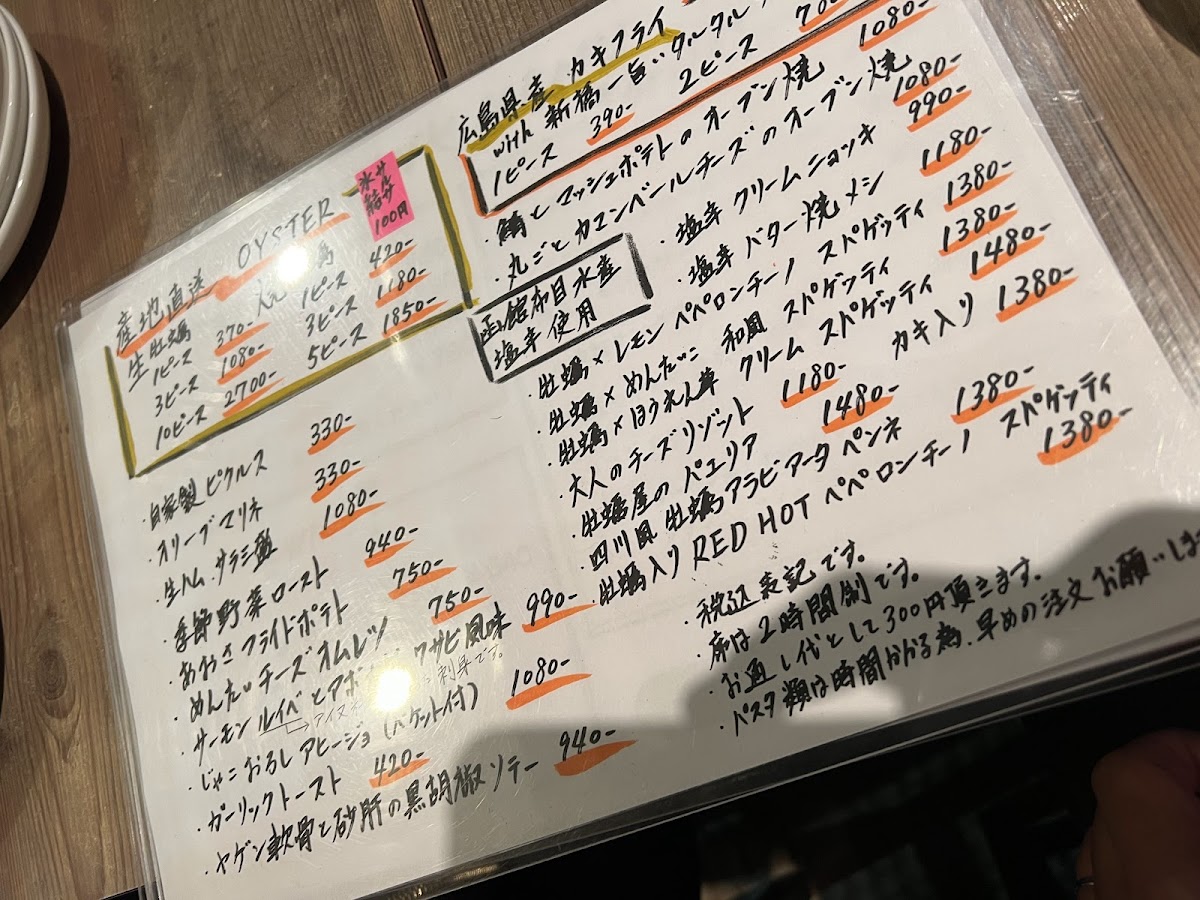 産地直送 OYSTER
サルサ
氷結
100円
生牡蠣
1ピース 370-
3ピース 1080-
10ピース 2700-
1ピース 420-
3ピース 1180-
5ピース 1850-
・自家製ピクルス 330-
・オリーブマリネ 330-
・生ハム サラミ盛 1080-
・季節野菜ロースト 940-
・あおさフライドポテト 750-
・めんたいチーズオムレツ 750-
・サーモンルイベとアボ ワサビ風味 990-
刺身です。
・じゃこおろしアヒージョ(バケット付) 1080-
・ガーリックトースト 420-
・ヤゲン軟骨と砂肝の黒胡椒ソテー 940-
広島県産 カキフライ
with 新橋一旨いタルタル
1ピース 390- 2ピース 700
・鯖とマッシュポテトのオーブン焼 1080-
・丸ごとカマンベールチーズのオーブン焼 1080-
函館布目水産
塩辛使用
・塩辛クリームニョッキ 990-
・塩辛バター焼メシ 1180-
・牡蠣×レモンペペロンチーノ スパゲッティ 1380-
・牡蠣×めんたいこ 和風 スパゲッティ 1380-
・牡蠣×ほうれん草 クリームスパゲッティ 1480-
・大人のチーズリゾット 1180- カキ入り 1380-
・牡蠣屋のパエリア 1480-
・四川風 牡蠣アラビアータペンネ 1380-
・牡蠣入り RED HOT ペペロンチーノ スパゲッティ 1380-
・税込表記です。
・席は2時間制です。
・お通し代として300円頂きます。
・パスタ類は時間かかる為、早めの注文お願いしま